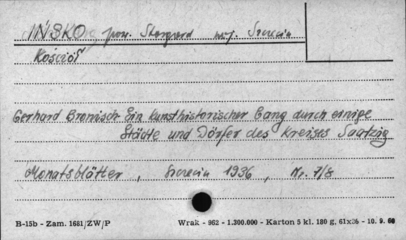 IŃSKO pow. Stargard woj. Szczecin
Kościół
Gerhard Bronisch Ein kunsthistorischer Gang durch einige
Städte und Dörfer des Kreises Saatzig
Monatsblätter, Szczecin 1936, Nr. 7/8
B-15b - Zam. 1681/ZW/P Wrak - 962 - 1.300.000 - Karton 5 kl. 180 g, 61x86 - 10. 9. 60